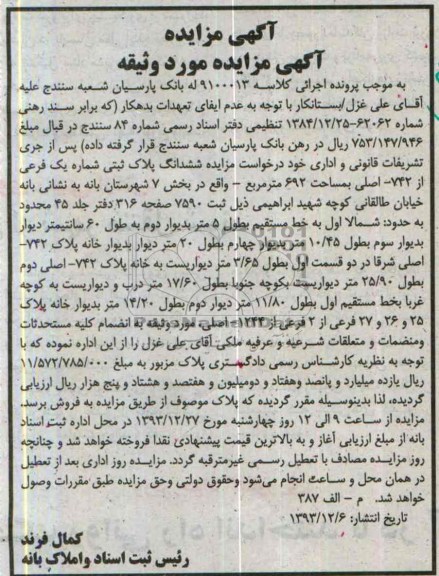 آگهی مزایده
آگهی مزایده مورد وثیقه
به موجب پرونده اجرائی کلاسه ۹۱۰۰۰۱۳ له بانک پارسیان شعبه سنندج علیه
آقـای علی غزل/بستانکار با توجه به عدم ایفای تعهدات بدهکار (که برابر سند رهنی
شماره ۶۲۰۶۲-۱۳۸۴/۱۲/۲۵ تنظیمی دفتر اسناد رسمی شماره ۸۴ سنندج در قبال مبلغ
۷۵۳/۱۴۷/۹۴۶ ریال در رهن بانک پارسیان شعبه سنندج قرار گرفته داده) پس از جری
تشریفات قانونی و اداری خود درخواست مزایده ششدانگ پلاک ثبتی شماره یک فرعی
از ۷۴۲- اصلی بمساحت ۶۹۲ مترمربع - واقع در بخش ۷ شهرستان بانه به نشانی بانه
خیابان طالقانی کوچه شهید ابراهیمی ذیل ثبت ۷۵۹۰ صفحه ۳۱۶ دفتر جلد ۴۵ محدود
به حدود: شمـالا اول به خط مستقیم بطول ۵ متر بدیوار دوم به طول ۶۰ سانتیمتر دیوار
بدیوار سوم بطول ۱۰/۴۵ متر بدیوار چهارم بطول ۲۰ متر دیوار بدیوار خانه پلاک ۷۴۲-
اصلی شرقا در دو قسمت اول بطول ۳/۶۵ متر دیواریست به خانه پلاک ۷۴۲- اصلی دوم
بطول ۲۵/۹۰ متر دیواریست بکوچه جنوبا بطول ۱۷/۶۰ متر درب و دیواریست به کوچه
غربا بخط مستقیم اول بطول ۱۱/۸۰ متر دیوار دوم بطول ۱۴/۲۰ متر بدیوار خانه پلاک
۲۵ و ۲۶ و ۲۷ فرعی از ۲ فرعی از ۱۲۴۳- اصلی، مورد وثیقه به انضمام کلیه مستحدثات
ومنضمات و متعلقات شرعیه و عرفیه ملکی آقای علی غزل را از این اداره نموده که با
توجه به نظریه کارشناس رسمی دادگستری پلاک مزبور به مبلغ ۱۱/۵۷۲/۷۸۵/۰۰۰
ریال یازده میلیارد و پانصد وهفتاد و دومیلیون و هفتصد و هشتاد و پنج هزار ریال ارزیابی
گردیده، لذا بدینوسیله مقرر گردیده که پلاک موصوف از طریق مزایده به فروش برسد.
مزایده از ساعت ۹ الی ۱۲ روز چهارشنبه مورخ ۱۳۹۳/۱۲/۲۷ در محل اداره ثبت اسناد
بانه از مبلغ ارزیابی آغاز و به بالاترین قیمت پیشنهادی نقدا فروخته خواهد شد و چنانچه
روز مزایده مصادف با تعطیل رسمی غیرمترقبه گردد. مزایده روز اداری بعد از تعطیل
در همان محل و ساعت انجام می‌شود وحقوق دولتی وحق مزایده طبق مقررات وصول
خواهد شد. م - الف ۳۸۷
تاریخ انتشار: ۱۳۹۳/۱۲/۶
کمال فرند
رئیس ثبت اسناد واملاک بانه